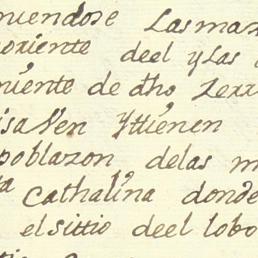 niendose Las mas
oriente deel y Las
niente de dho Zerr
isa Ven Yttienen
poblazon delas m
ta Cathalina donde
el sittio deel lobo